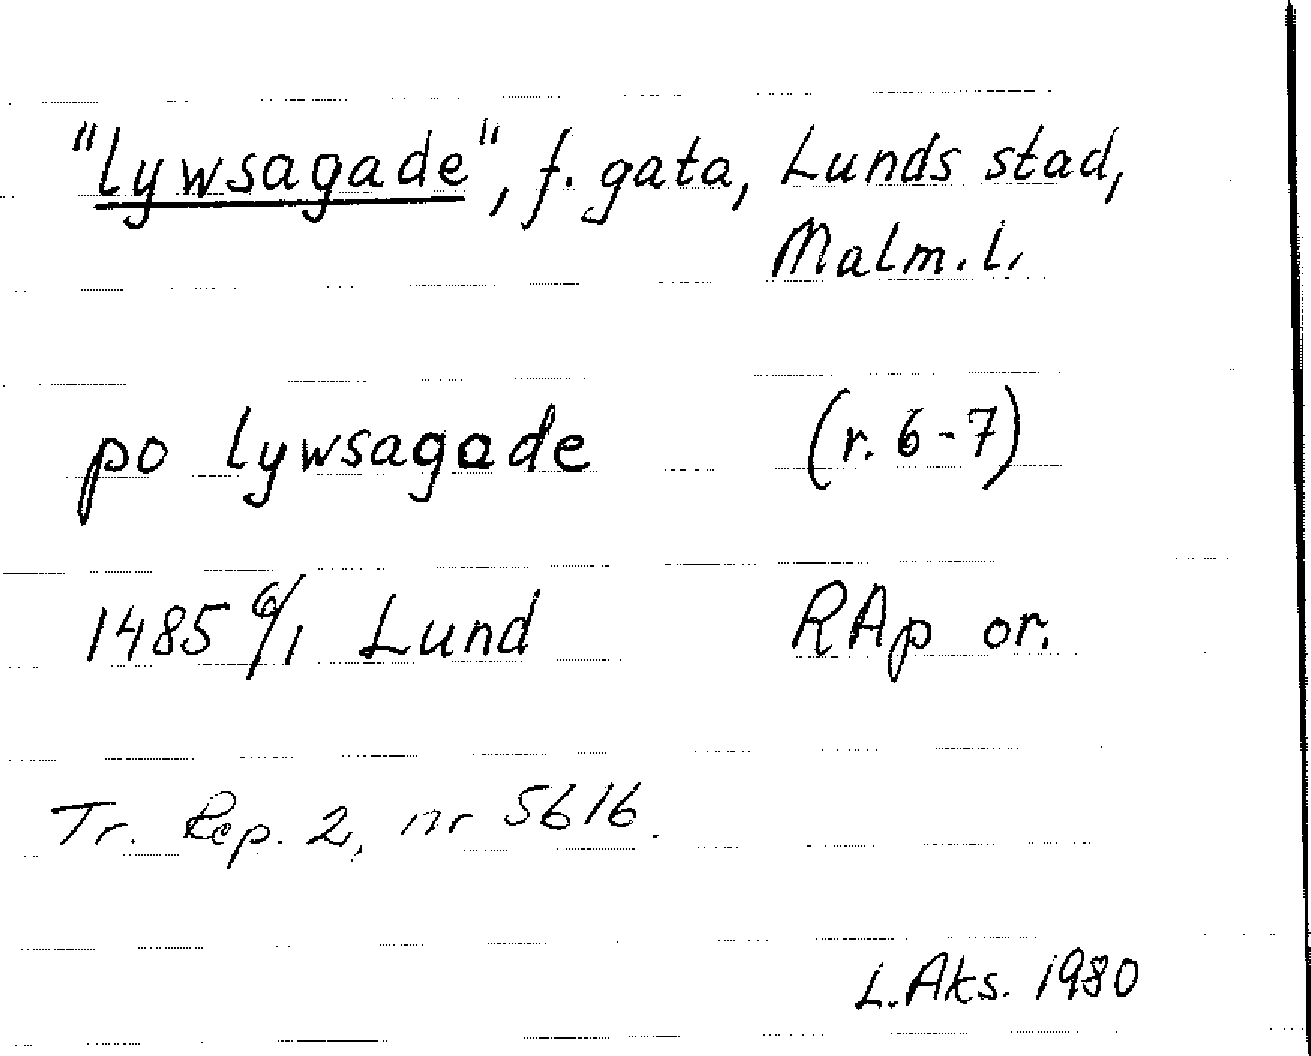 "lywsagade", f. gata, Lunds stad,
Malm. l.
po lywsagade (r. 6-7)
1485 6/1 Lund RAp or.
Tr. Rep. 2, nr 5616.
L. Aks. 1980